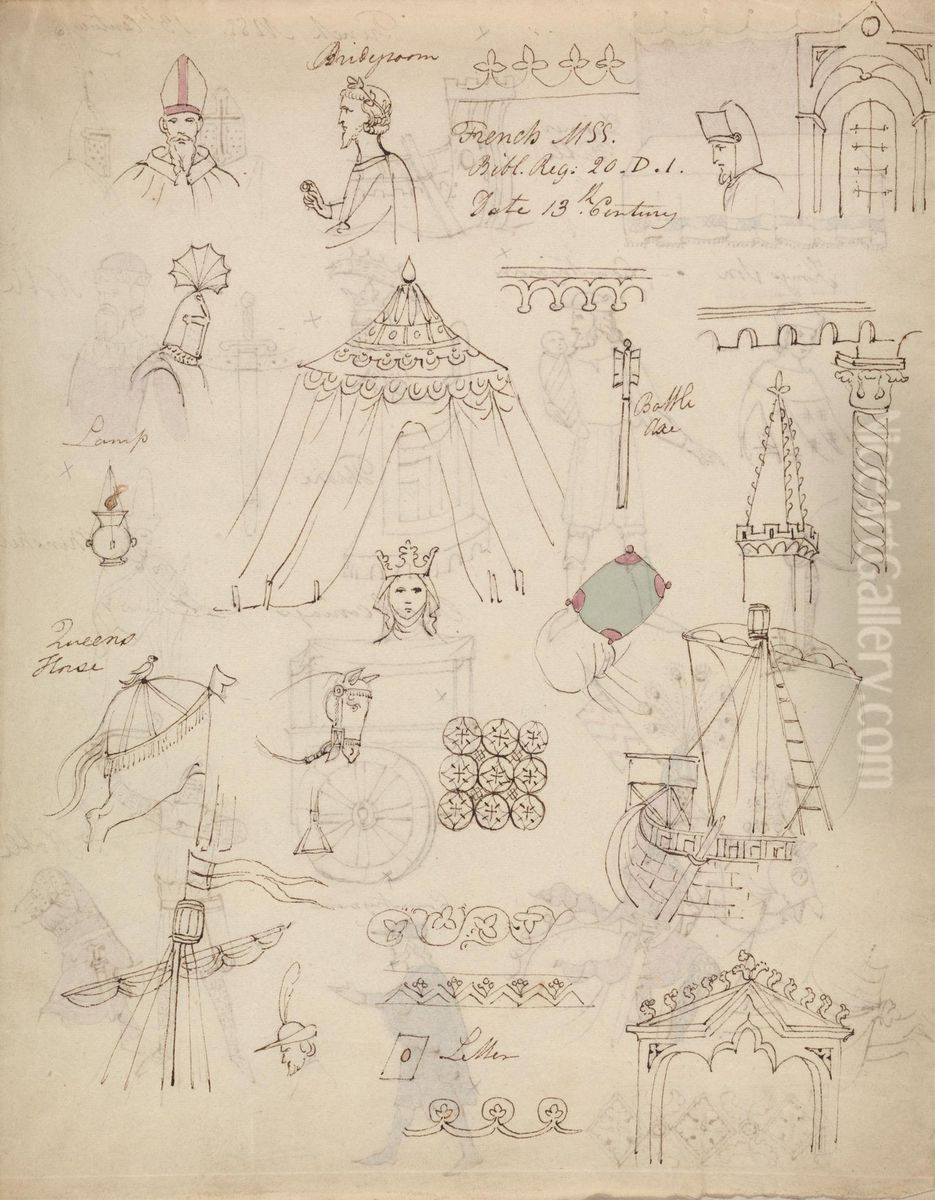 Bridegroom
French MSS.
Bibl. Reg: 20. D. 1.
Date 13th Century
Battle
Axe
Lamp
Queens
Horse
Letter
WikiArtGallery.com